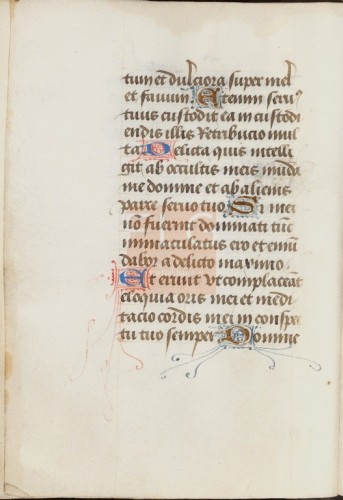 tum et dulciora super mel
et favum Etenim seruꝰ
tuus custodit ea in custodi
endis illis Retribucio mul
ta Delicta quis intelli
git ab occultis meis mūda
me domine et ab alienis
parce seruo tuo Si mei
nō fuerint dominati tūc
inmaculatus ero et emū
dabor a delicto maximo
Et erunt vt complaceāt
eloquia oris mei et medi
tacio cordis mei in conspe
ctu tuo semper Domine